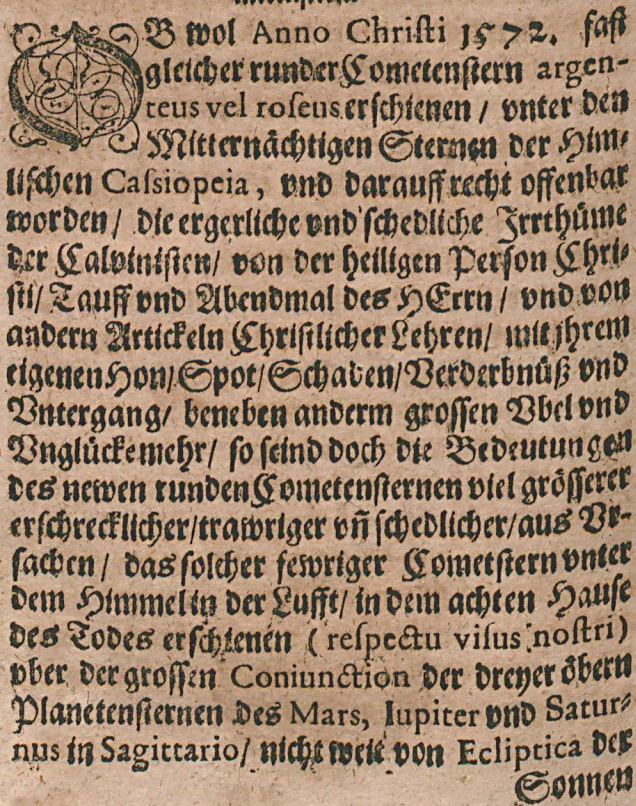 OB wol Anno Christi 1572. fast
gleicher runder Cometenstern argen-
teus vel roseus erschienen / vnter den
Mitternächtigen Sternen der Him-
lischen Cassiopeia, vnd darauff recht offenbar
worden / die ergerliche vnd schedliche Jrrthüme
der Calvinisten / von der heiligen Person Chri-
sti / Tauff vnd Abendmal des HErrn / vnd von
andern Artickeln Christlicher Lehren / mit jhrem
eigenen Hon / Spot / Schaden / Verderbnüß vnd
Vntergang / beneben anderm grossen Vbel vnd
Vnglücke mehr / so seind doch die Bedeutungen
des newen runden Cometensternen viel grösserer
erschrecklicher / trawriger vñ schedlicher / aus Vr-
sachen / das solcher fewriger Cometstern vnter
dem Himmel in der Lufft / in dem achten Hause
des Todes erschienen ( respectu visus nostri )
vber der grossen Coniunction der dreyer öbern
Planetensternen des Mars, Iupiter vnd Satur-
nus in Sagittario / nicht weit von Ecliptica der
Sonnen